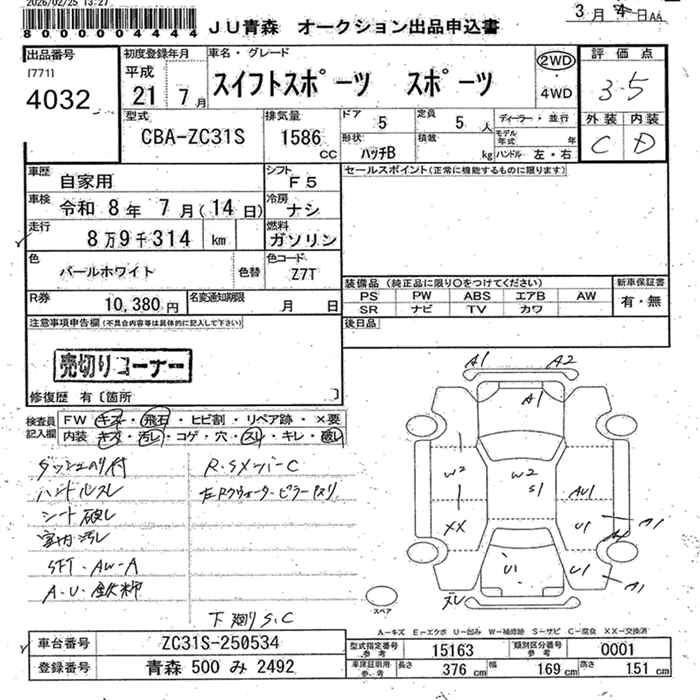 2026/02/25 13:27
8000004444
JU青森 オークション出品申込書
3月4日AA
出品番号
[771]
4032
初度登録年月
平成
21 7月
車名・グレード
スイフトスポーツ スポーツ
2WD
・
4WD
評価点
3.5
外装 内装
C D
型式
CBA-ZC31S
排気量
1586
CC
ドア 5
形状
ハッチB
定員 5人
積載 kg
ディーラー・並行
モデル年式 年
ハンドル 左・右
車歴 自家用
シフト F5
車検 令和 8年 7月(14日)
冷房 ナシ
走行 8万9千314 km
燃料 ガソリン
色 パールホワイト 色替
色コード Z7T
R券 10,380円
名変通知期限 月 日
セールスポイント(正常に機能するものに限ります)
装備品 (純正品に限り○をつけてください)
PS PW ABS エアB AW
SR ナビ TV カワ
新車保証書
有・無
後日品
注意事項申告欄(不具合内容等は具体的に記入して下さい)
売切りコーナー
修復歴 有〔箇所 〕
検査員記入欄
FW キズ・飛石・ヒビ割・リペア跡・×要
内装・キズ・汚レ・コゲ・穴・スレ・キレ・破レ
ハンドルスレ
シート破レ
室内汚レ
SFT・AW-A
R・Sメンバー C
下廻りS.C
A1 A2
A1
W2 W2
S1
AU1
XX U1 A1
U1 U1 A1
スレ
スペア
A-キズ E-エクボ U-凹み W-補修跡 S-サビ C-腐食 XX-交換済
車台番号 ZC31S-250534
登録番号 青森 500 み 2492
型式指定番号 参考 15163
類別区分番号 参考 0001
車検証明用 参考
長さ 376cm 幅 169cm 高さ 151cm